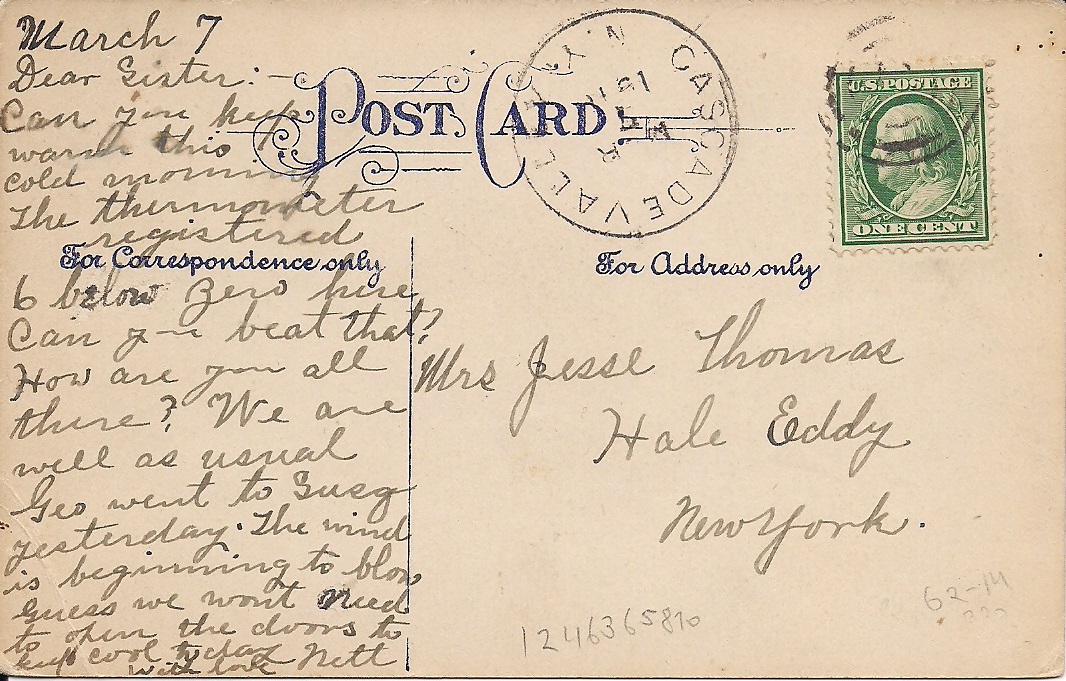 March 7
Dear Sister:-
Can you keep
warm this
cold morning
The thermometer
registered
6 below zero here
Can you beat that?
How are you all
there? We are
well as usual
Geo went to Susq
yesterday. The wind
is beginning to blow
guess we wont need
to open the doors to
keep cool today
with love Nett
POST CARD
For Correspondence only
For Address only
CASCADE VALLEY N.Y.
MAR
U.S. POSTAGE
ONE CENT
Mrs Jesse Thomas
Hale Eddy
New York.
1246365810
62-14